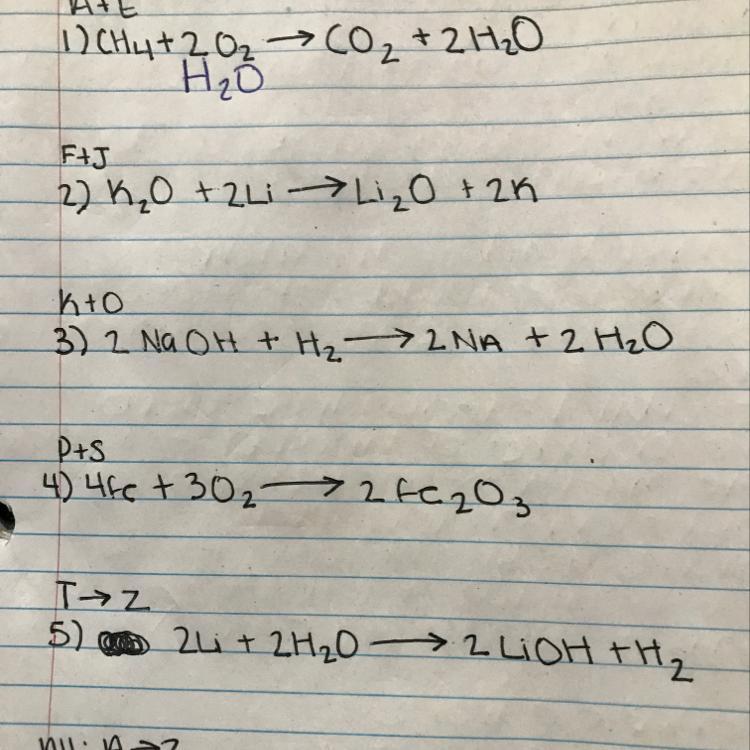 A+E
1) CH₄ + 2 O₂ → CO₂ + 2H₂O
H₂O
F+J
2) K₂O + 2Li → Li₂O + 2K
K+O
3) 2 NaOH + H₂ → 2 NA + 2 H₂O
P+S
4) 4Fe + 3O₂ → 2 Fe₂O₃
T→Z
5) 2Li + 2H₂O → 2 LiOH + H₂